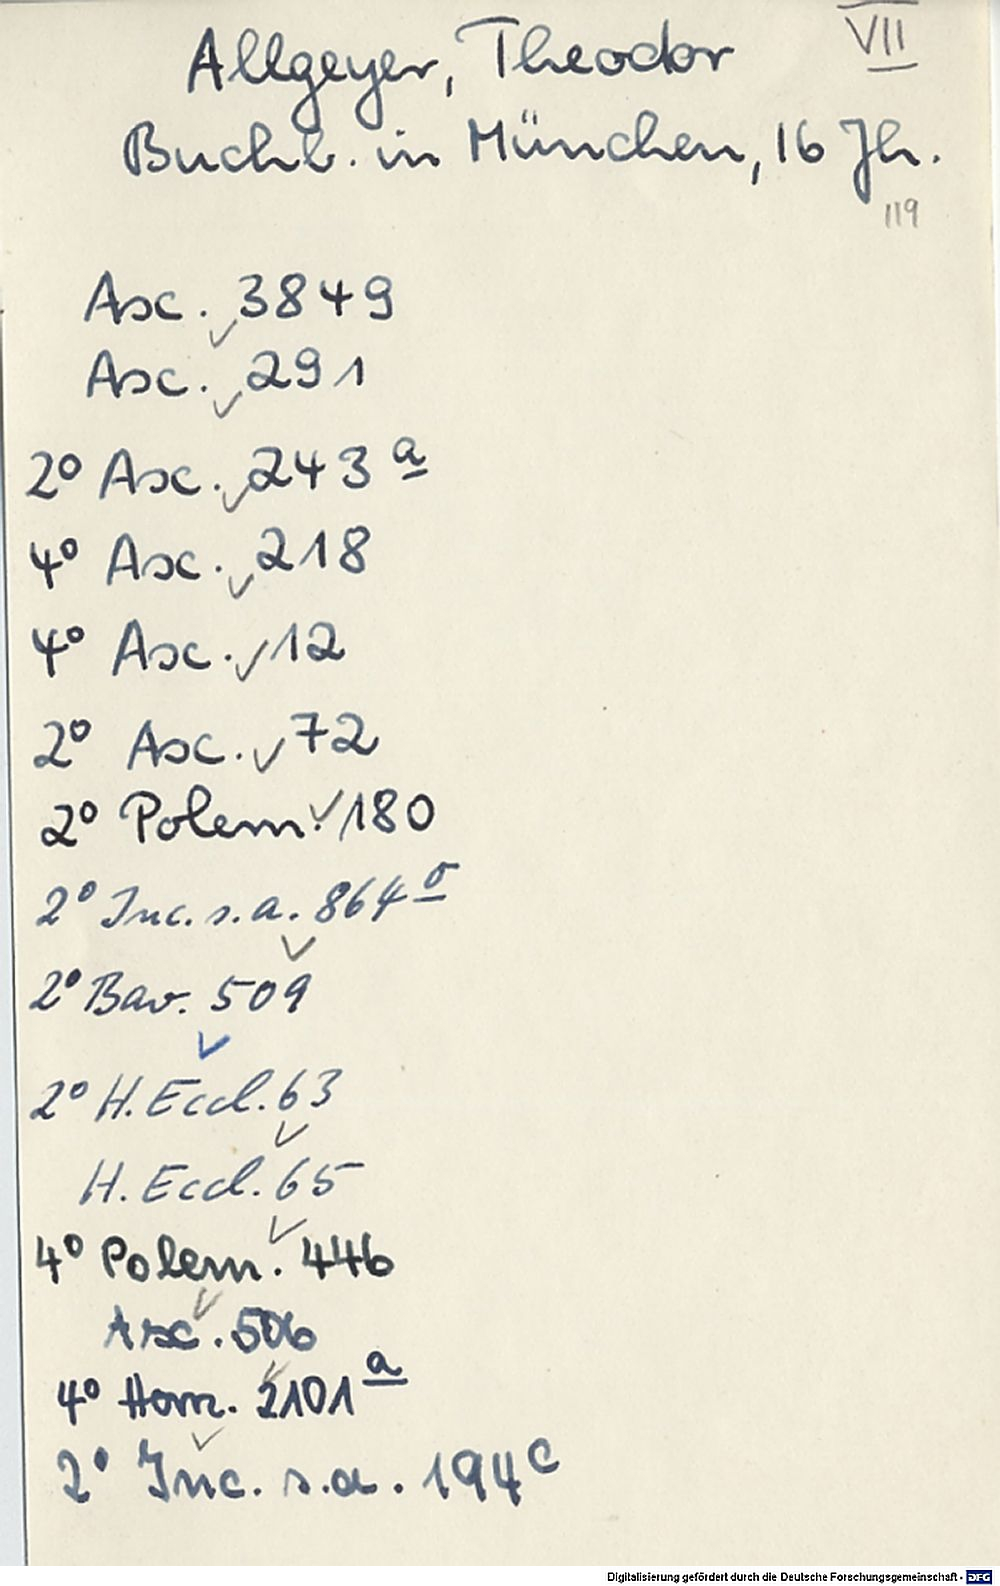 VII
Allgeyer, Theodor
Buchb. in München, 16 Jh.
119
Asc. 3849
Asc. 291
2° Asc. 243 a
4° Asc. 218
4° Asc. 12
2° Asc. 72
2° Polem. 180
2° Inc. s. a. 864
2° Bav. 509
2° H. Eccl. 63
H. Eccl. 65
4° Polem. 446
Asc. 506
4° Hom. 2101 a
2° Inc. s. a. 194 c
Digitalisierung gefördert durch die Deutsche Forschungsgemeinschaft - DFG